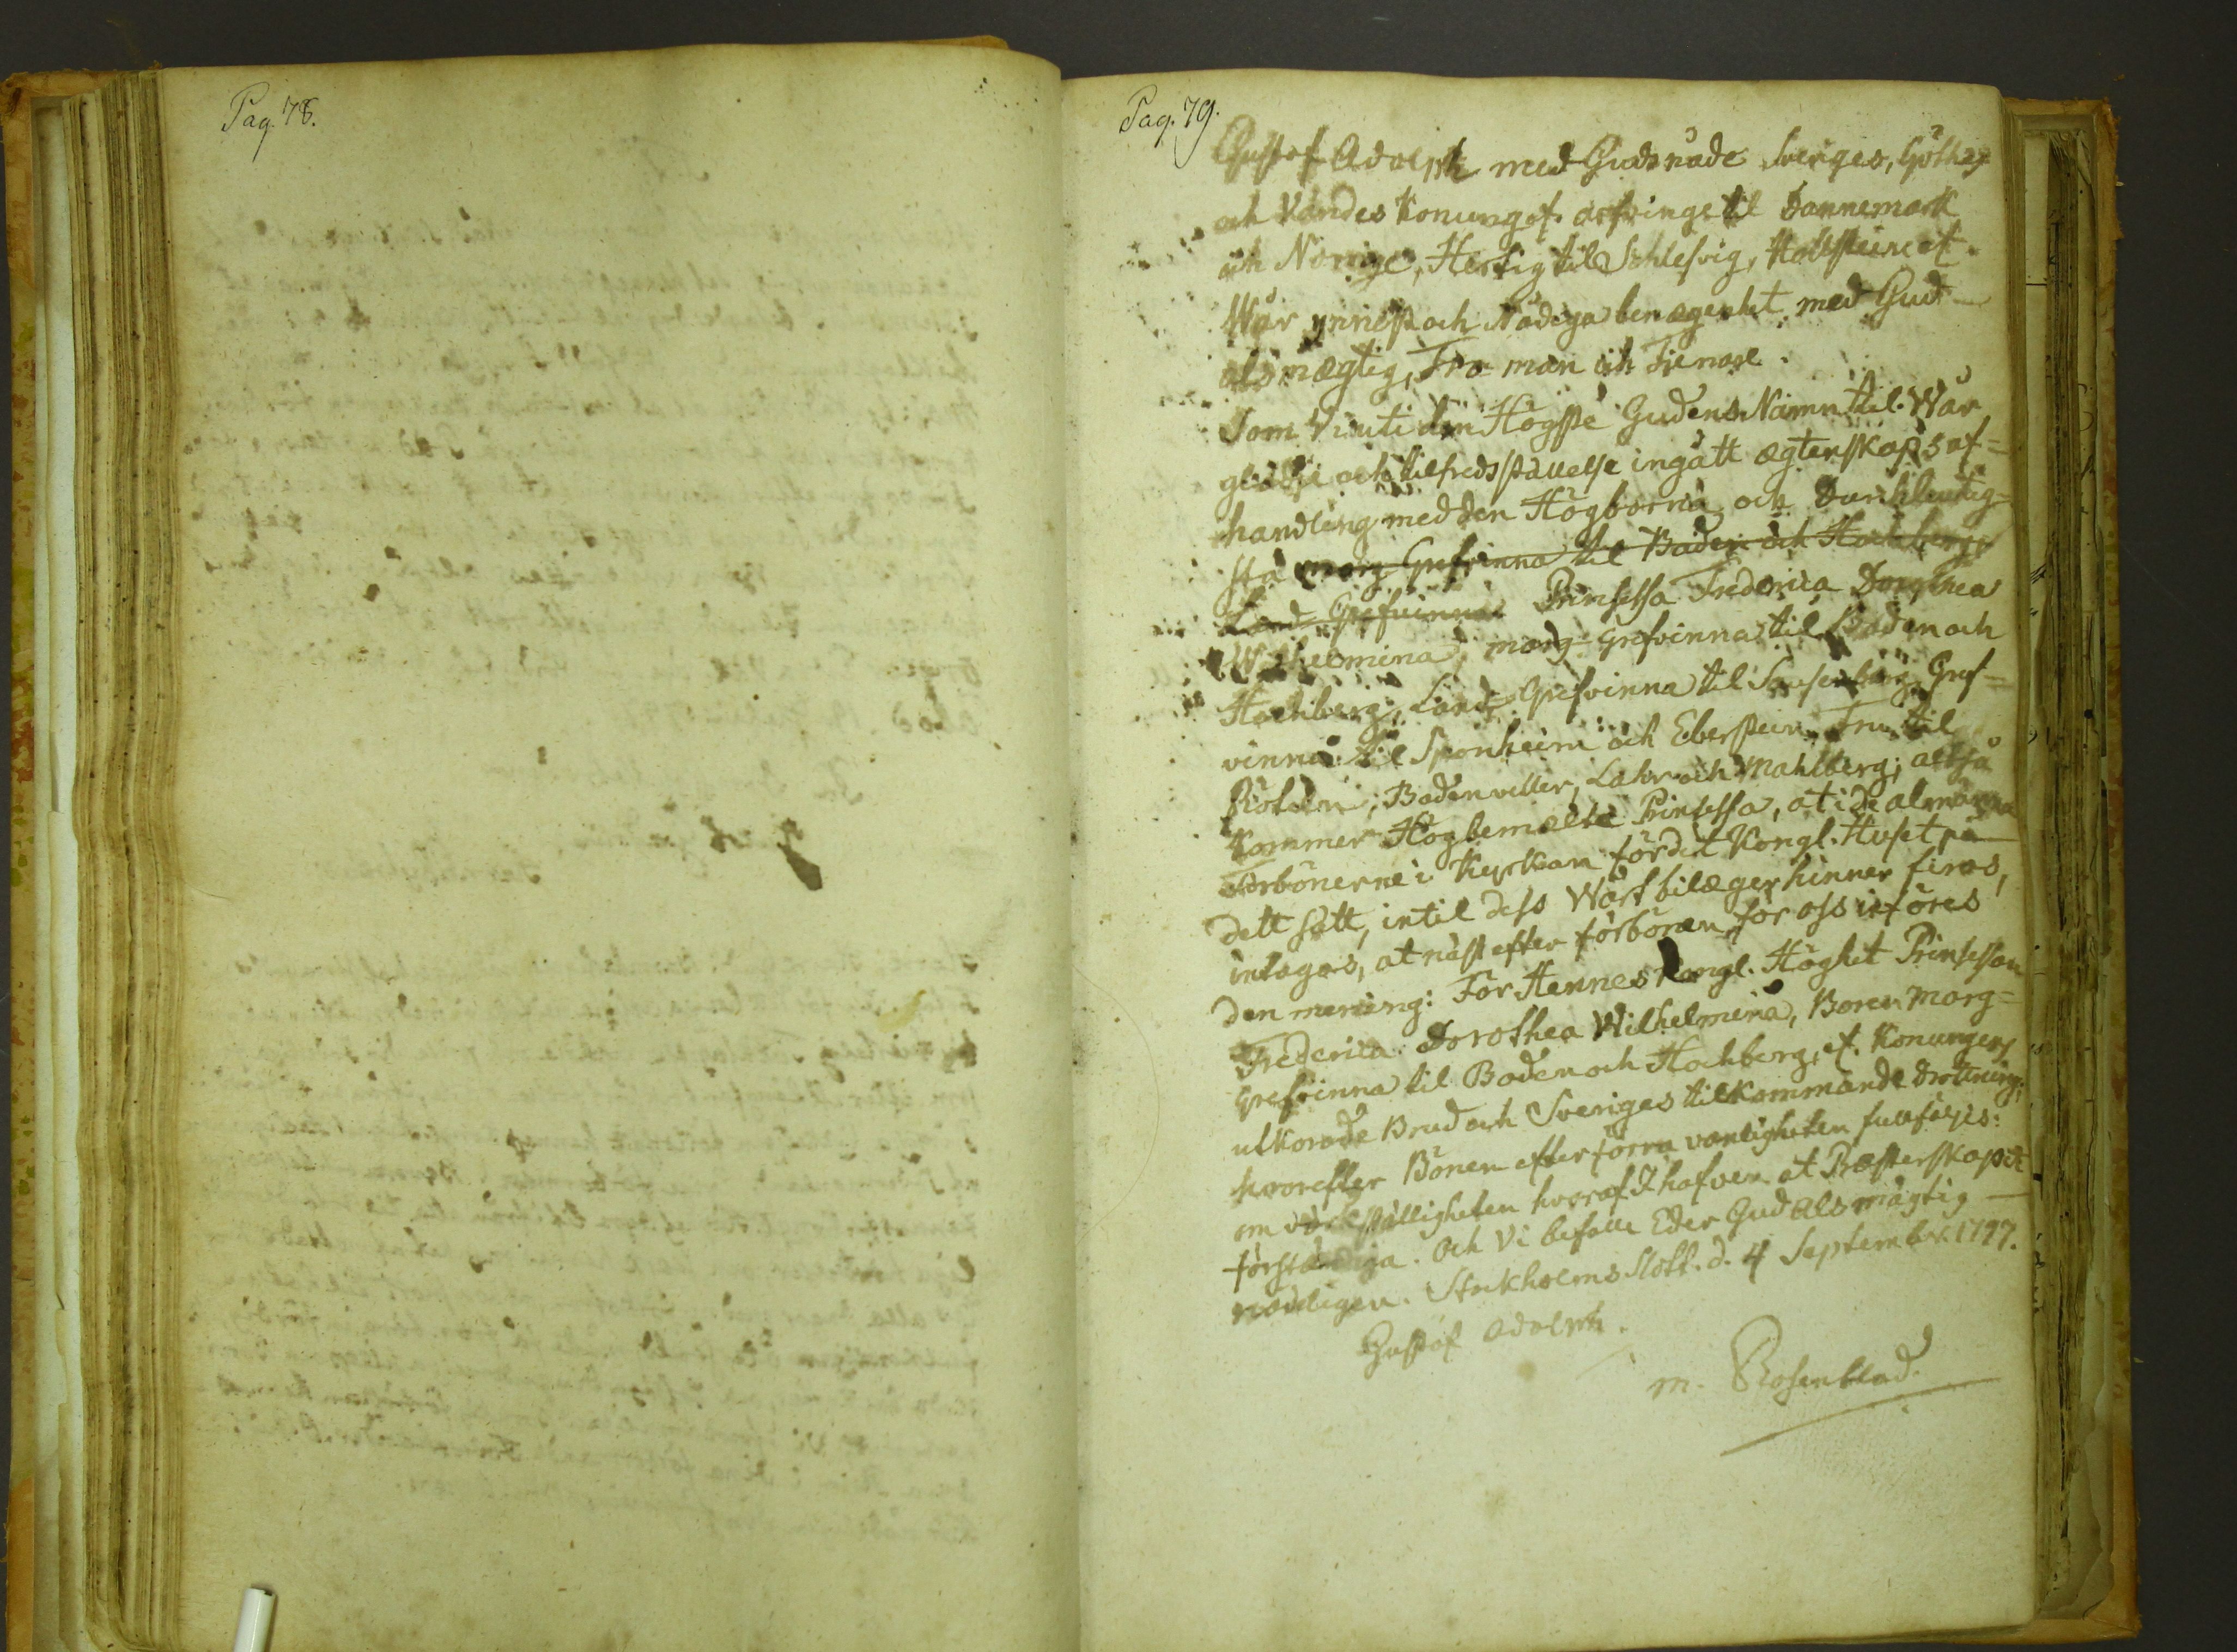 Pag. 78.
Pag. 79.
Gustaf Adolph med Guds nåde Sveriges, Göthes
och Vandes Konung &. arfvinge til Dannemark
och Norrige, Hertig til Schlesvig, Hollstein &.
Wår ynnest och Nådiga benägenhet med Gud
alsmägtig, Tro man och Tienare.
Som Vi uti den Högste Gudens Namn til Wår
glädje och tilfredsställelse ingått ägtenskaps af=
handling med den Högborna och Durchleutig=
sta marg Grefvinna til Baden och Hochberg,
Land Grefvinna Prinsessa Frederica Dorothea
Wilhelmina, marg-Grefvinna til Baden och
Hochberg, Land-Grefvinna til Sausenberg, Gref=
vinna til Sponheim och Eberstein, Fru til
Röteln, Badenveller, Lahr och Mahlberg; altså
kommer Högbemälte Prinsessa, at i de almänna
Förbönerne i Kyrkan för det Kongl. Huset på
dett sätt, intil dess Wårt bilager hinner firas,
intagas, at näst efter förbönen för oss införes
den mening: För Hennes Kongl. Höghet Prinsessan
Frederica Dorothea Wilhelmina, Boren Marg=
grefvinna til Baden och Hochberg, &. Konungens
utkorade Brud och Sveriges tilkommande Drottning;
hvarefter Bönen efter förra vanligheten fullföljes:
om värkställigheten hvaraf I hafven at Prästerskapet
förständiga. Och Vi befalle Eder Gud Alsmägtig
nådeligen. Stockholms Slott d. 4 September 1797.
Gustaf Adolph.
M. Rosenblad.